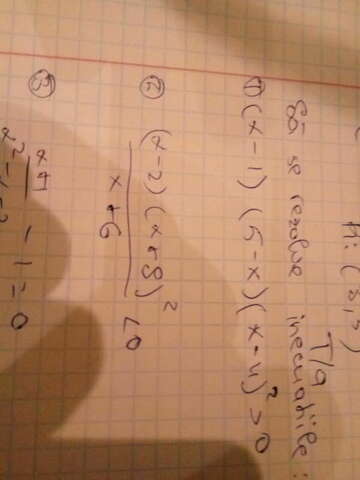 T/a
Să se rezolve inecuațiile:
① (x-1) (5-x)(x-4)² > 0
② (x-2)(x+8)² / x+6 < 0
③ x+1 / x²-x-2 - 1 = 0